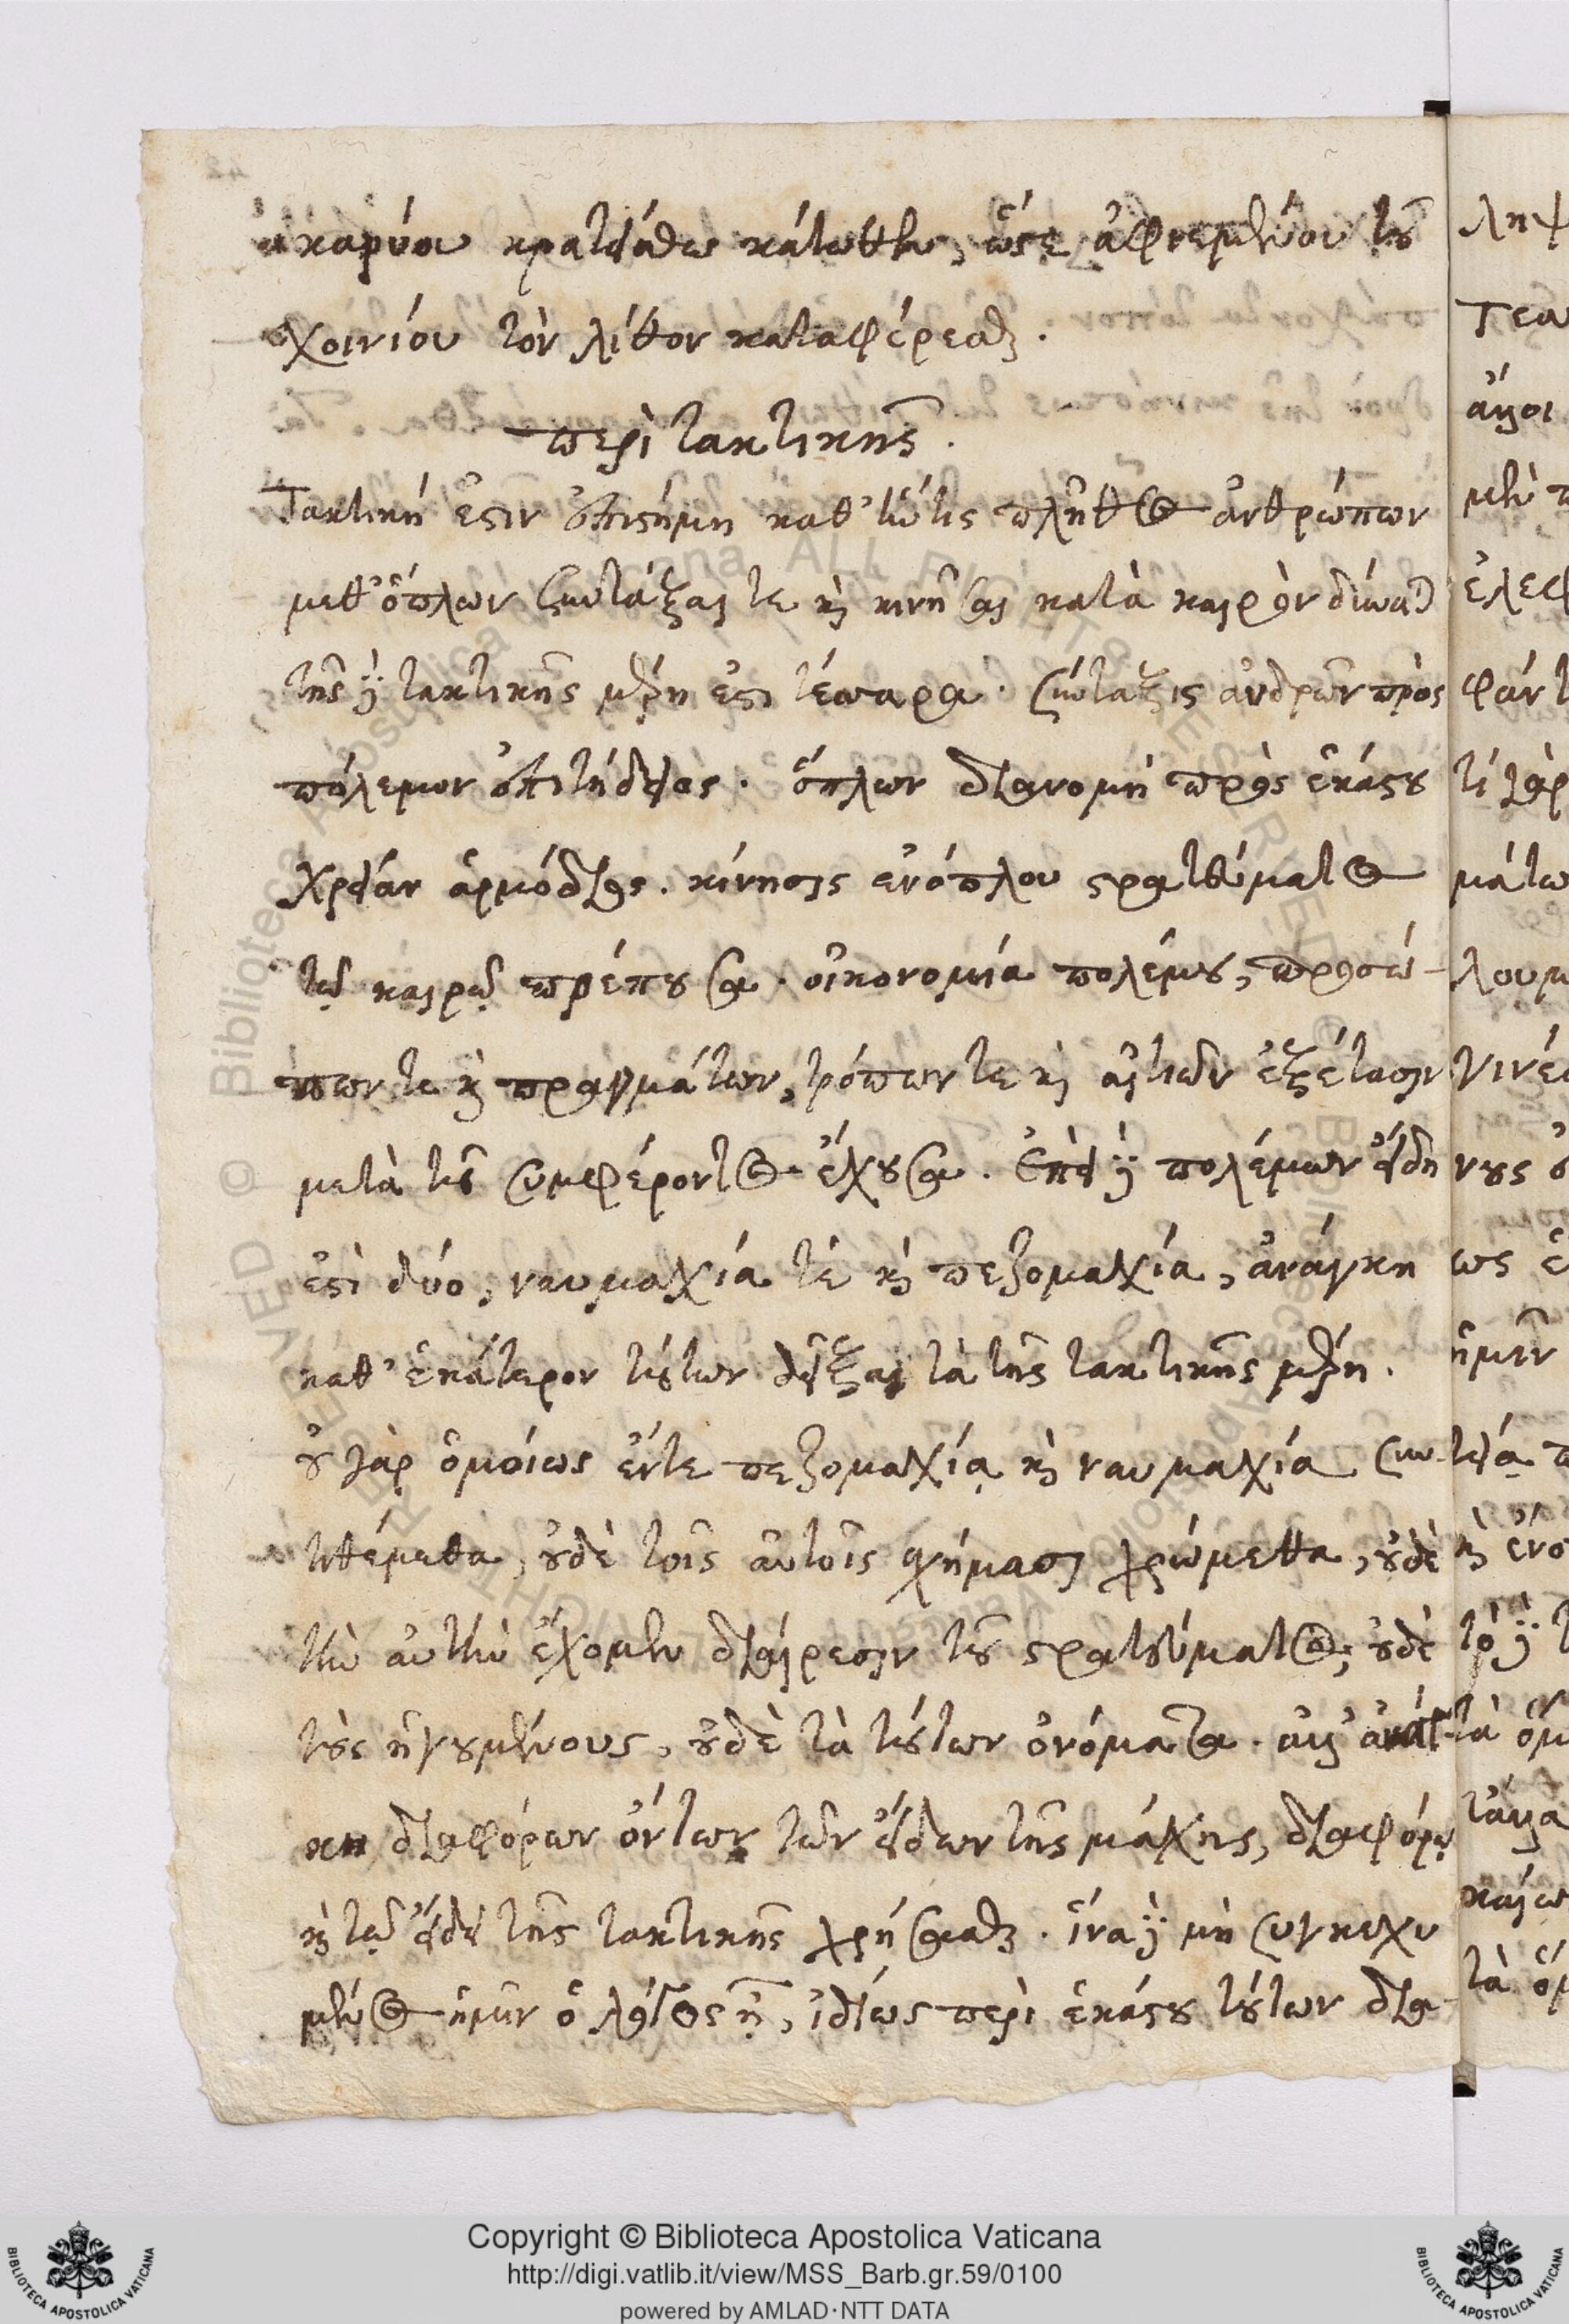 καρύου κρατείσθω κάτωθεν, ὥστε ἀφιεμένου τοῦ
σχοινίου τὸν λίθον καταφέρεσθαι.
περὶ τακτικῆς.
Τακτική ἐστιν ἐπιστήμη καθ' ἥν τις πλῆθος ἀνθρώπων
μεθ' ὅπλων συντάξαι τε καὶ κινῆσαι κατὰ καιρὸν δύναται
τῆς δὲ τακτικῆς μέρη ἐστὶ τέσσαρα. σύνταξις ἀνδρῶν πρὸς
πόλεμον ἐπιτήδειος. ὅπλων διανομὴ πρὸς ἑκάστου
χρείαν ἁρμόδιος. κίνησις ἐνόπλου στρατεύματος
τῷ καιρῷ πρέπουσα. οἰκονομία πολέμου, προσώ-
πων τε καὶ πραγμάτων, τρόπων τε καὶ αἰτιῶν ἐξέτασιν
μετὰ τοῦ συμφέροντος ἔχουσα. ἐπεὶ δὲ πολέμων εἴδη
ἐστὶ δύο, ναυμαχία τὲ καὶ πεζομαχία, ἀνάγκη
καθ' ἑκάτερον τούτων δεῖξαι τὰ τῆς τακτικῆς μέρη.
οὐ γὰρ ὁμοίως ἔν τε πεζομαχίᾳ καὶ ναυμαχίᾳ συν-
τιθέμεθα, οὐδὲ τοῖς αὐτοῖς σχήμασι χρώμεθα, οὐδὲ
τὴν αὐτὴν ἔχομεν διαίρεσιν τοῦ στρατεύματος, οὐδὲ
τοὺς ἡγουμένους, οὐδὲ τὰ τούτων ὀνόματα. ἀλλ' ἀνάγ-
κη διαφόρων ὄντων τῶν εἰδῶν τῆς μάχης, διαφόρῳ
καὶ τῷ εἴδει τῆς τακτικῆς χρήσασθαι. ἵνα δὲ μὴ συγκεχυ
μένος ἡμῖν ὁ λόγος ᾖ, ἰδίως περὶ ἑκάστου τούτων δια-
Copyright © Biblioteca Apostolica Vaticana
http://digi.vatlib.it/view/MSS_Barb.gr.59/0100
powered by AMLAD·NTT DATA
BIBLIOTECA APOSTOLICA VATICANA
BIBLIOTECA APOSTOLICA VATICANA